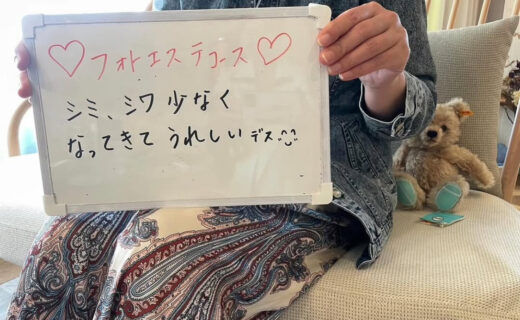 ♡フォトエステコース♡
シミ、シワ少なく
なってきてうれしいデス